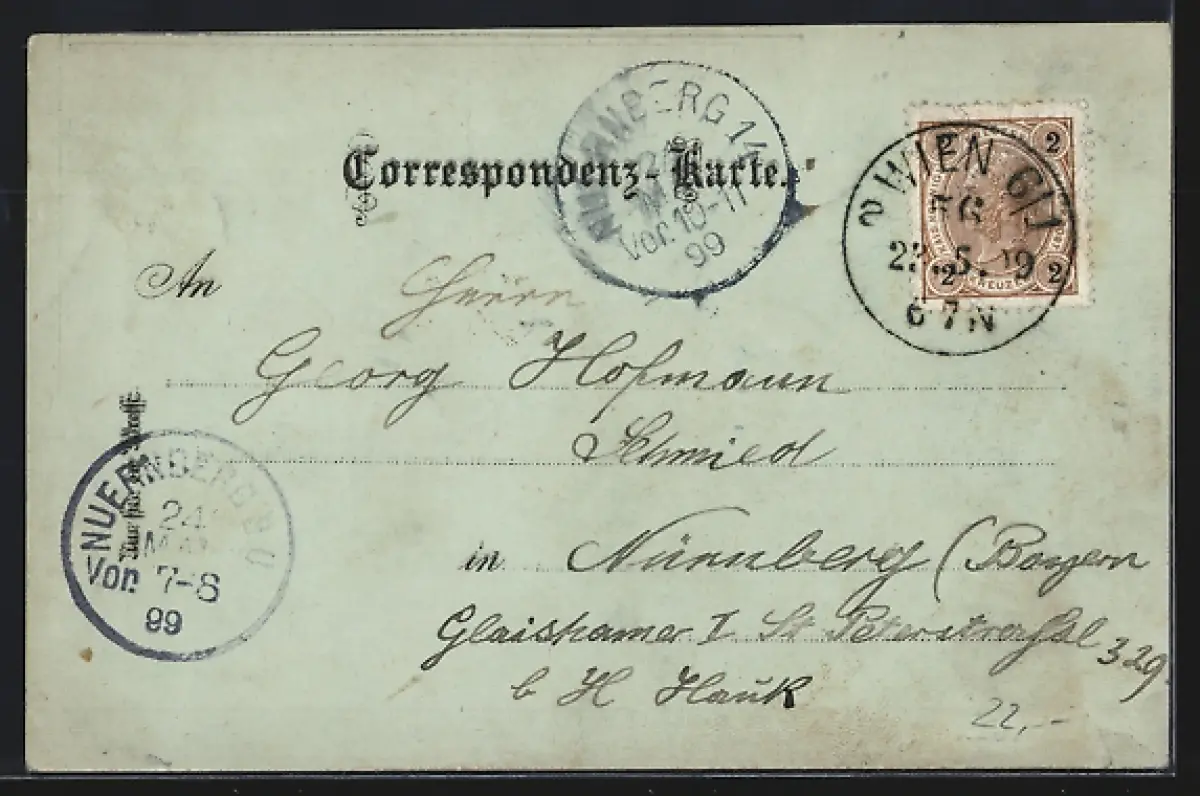 Correspondenz-Karte.
NUERNBERG 14
Vor. 10-11
99
2 WIEN 6/1
5. 99
6 7 N
2 2
2 2
An Herrn
Georg Hofmann
Schmied
in Nürnberg (Bayern
Glaishamer I St Peterstrasse 329
b H Hauk
22,-
Nur für die Adresse.
NUERNBERG
24
MAI
Vor. 7-8
99